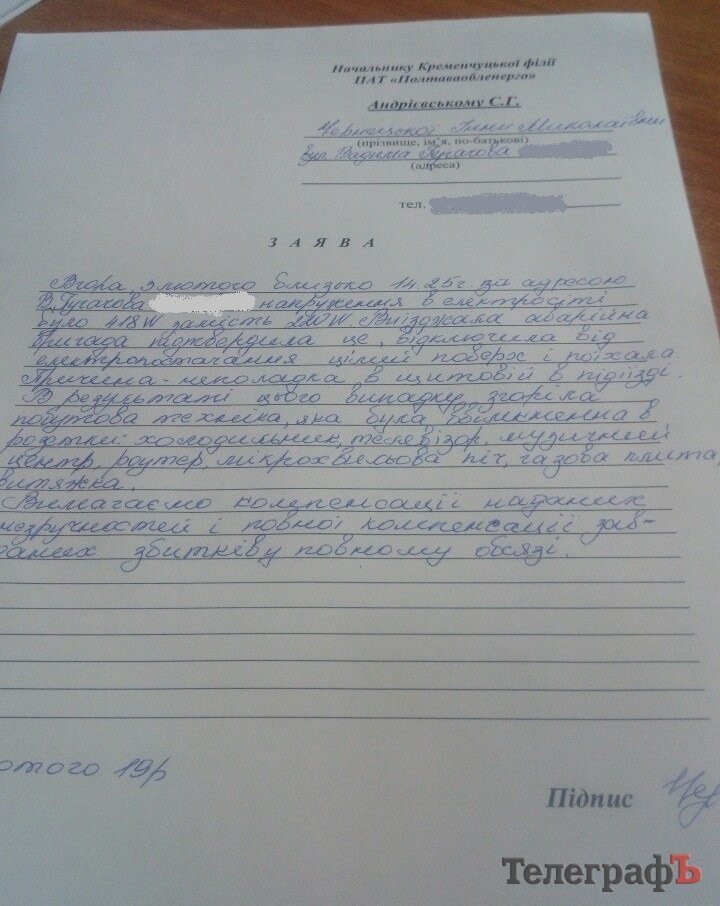 Начальнику Кременчуцької філії
ПАТ «Полтаваобленерго»
Андрієвському С.Г.
Чернецької Інни Миколаївни
(прізвище, ім'я, по-батькові)
вул. Вадима Гучакова
(адреса)
тел.
ЗАЯВА
Вчора, 3 лютого близько 14 25 г. за адресою
В.Гучакова напруження в електросіті
було 418W замість 220W. Виїзджала аварійна
бригада підтвердила це, відключила від
електропостачання цілий поверх і поїхала
Причина - неполадка в щитовій в підїзді.
В результаті цього випадку згоріла
побутова техніка, яка була ввімкненна в
розетки: холодильник, телевізор, музичний
центр, роутер, мікрохвильова піч, газова плита,
витяжка.
Вимагаємо компенсації наданих
незручностей і повної компенсації зав-
даних збитків у повному обсязі.
ютого 19р
Підпис
ТелеграфЪ